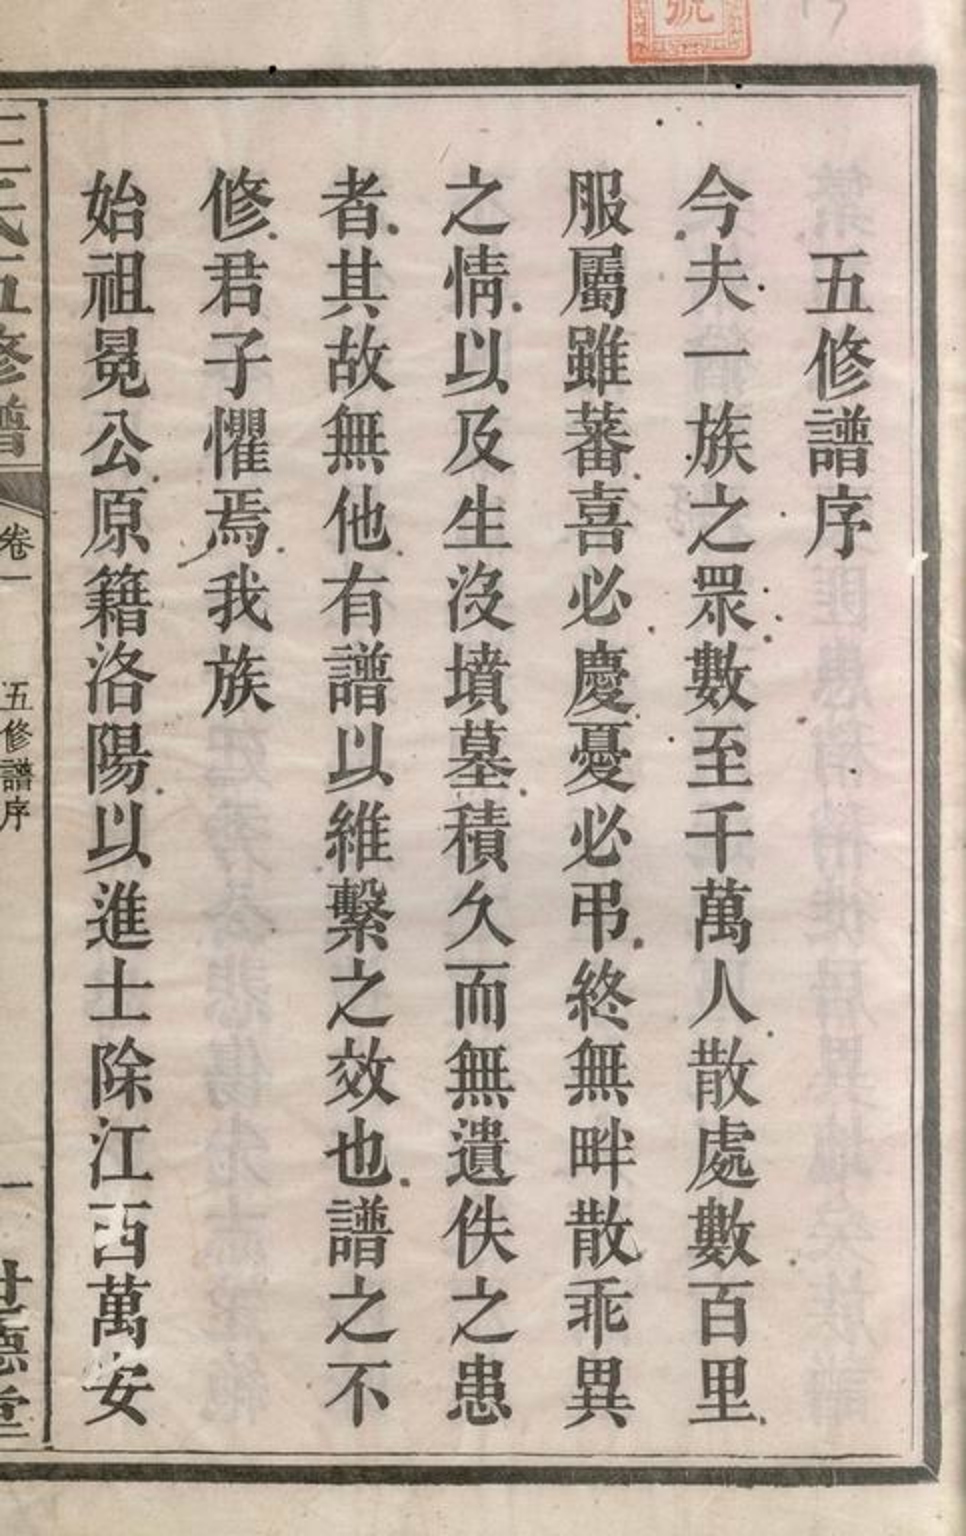 號
五修譜序
今夫一族之眾數至千萬人散處數百里
服屬雖蕃喜必慶憂必弔終無畔散乖異
之情以及生沒墳墓積久而無遺佚之患
者其故無他有譜以維繫之效也譜之不
修君子懼焉我族
始祖冕公原籍洛陽以進士除江西萬安
王氏五修譜
卷一
五修譜序
一
世德堂